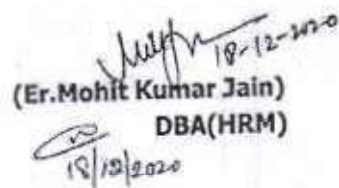 18-12-2020
(Er.Mohit Kumar Jain)
DBA(HRM)
18/12/2020